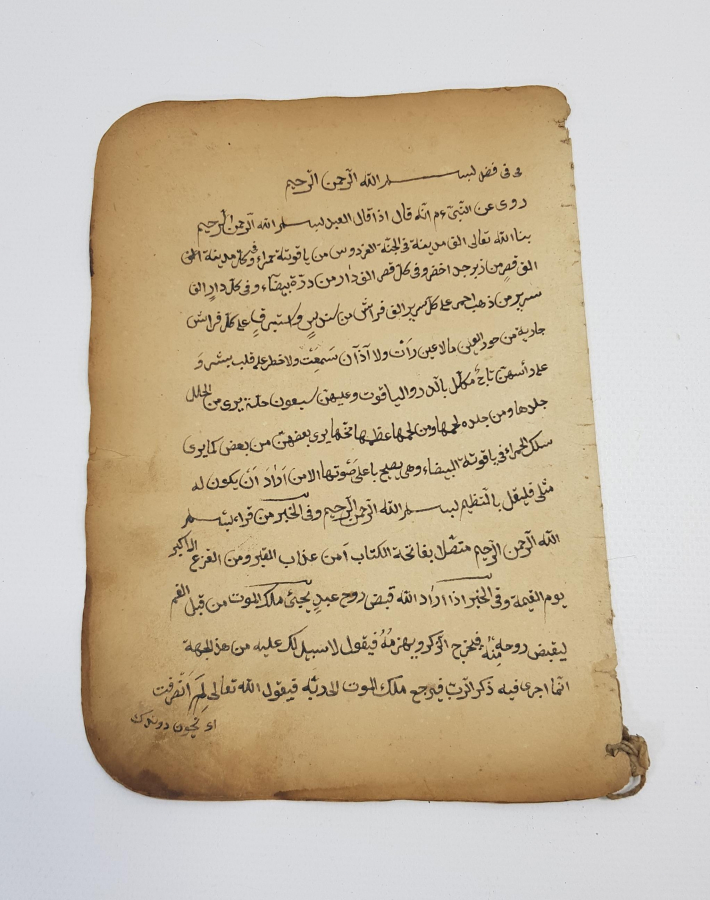 فى فضل بسم الله الرحمن الرحيم
روى عن النبى ءم انه قال اذا قال العبد بسم الله الرحمن الرحيم
بنا الله تعالى الف مدينة فى الجنة الفردوس من ياقوتة حمراء وفى كل مدينة الف
الف قصر من زبرجد اخضر وفى كل قصر الف دار من درّة بيضاء وفى كل دارٍ الف
سرير من ذهب احمر على كل سرير الف فراش من سندسٍ واستبرقٍ على كل فراش
جارية من حور العين مالا عين رأت ولا آذان سَمِعَت ولا خطر على قلب بشر و
على رأسهن تاج مكلل بالدر والياقوت وعليهن سبعون حلة يرى من الحلل
جلدها ومن جلده لحمها ومن لحمها عظمها مخها يرى بعضهن من بعض كما يرى
سلك الحمراء فى ياقوتة البيضاء وهى يصيح باعلى صَوتها الا من اَرادَ اَن يكون له
مثلى فليقل بالتعظيم بسم الله الرحمن الرحيم وفى الخبر من قراء بسم
الله الرحمن الرحيم متصلا بفاتحة الكتاب اَمن عذاب القبر ومن الفزع الاكبر
يوم القيمة وفى الخبر اذا اراد الله قبض روح عبدٍ يجئ ملك الموت من قبل الفم
ليقبض روحه مِنْهُ فيخرج الذكر ويهزمهُ فيقول لا سبيل لك عليه من هذ الجهة
انما اجرى فيه ذكر الرب فيرجع ملك الموت الى ربّه فيقول الله تعالى لِمَ اَنصَرفت
اى نچون دوندك